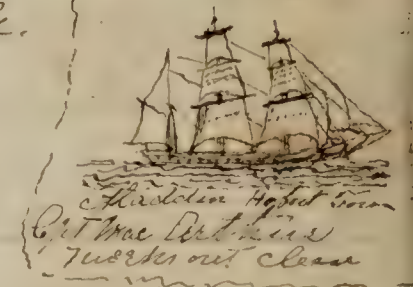 Aladdin Hobart Town
Cpt Mac Arthur
7 weeks out clean